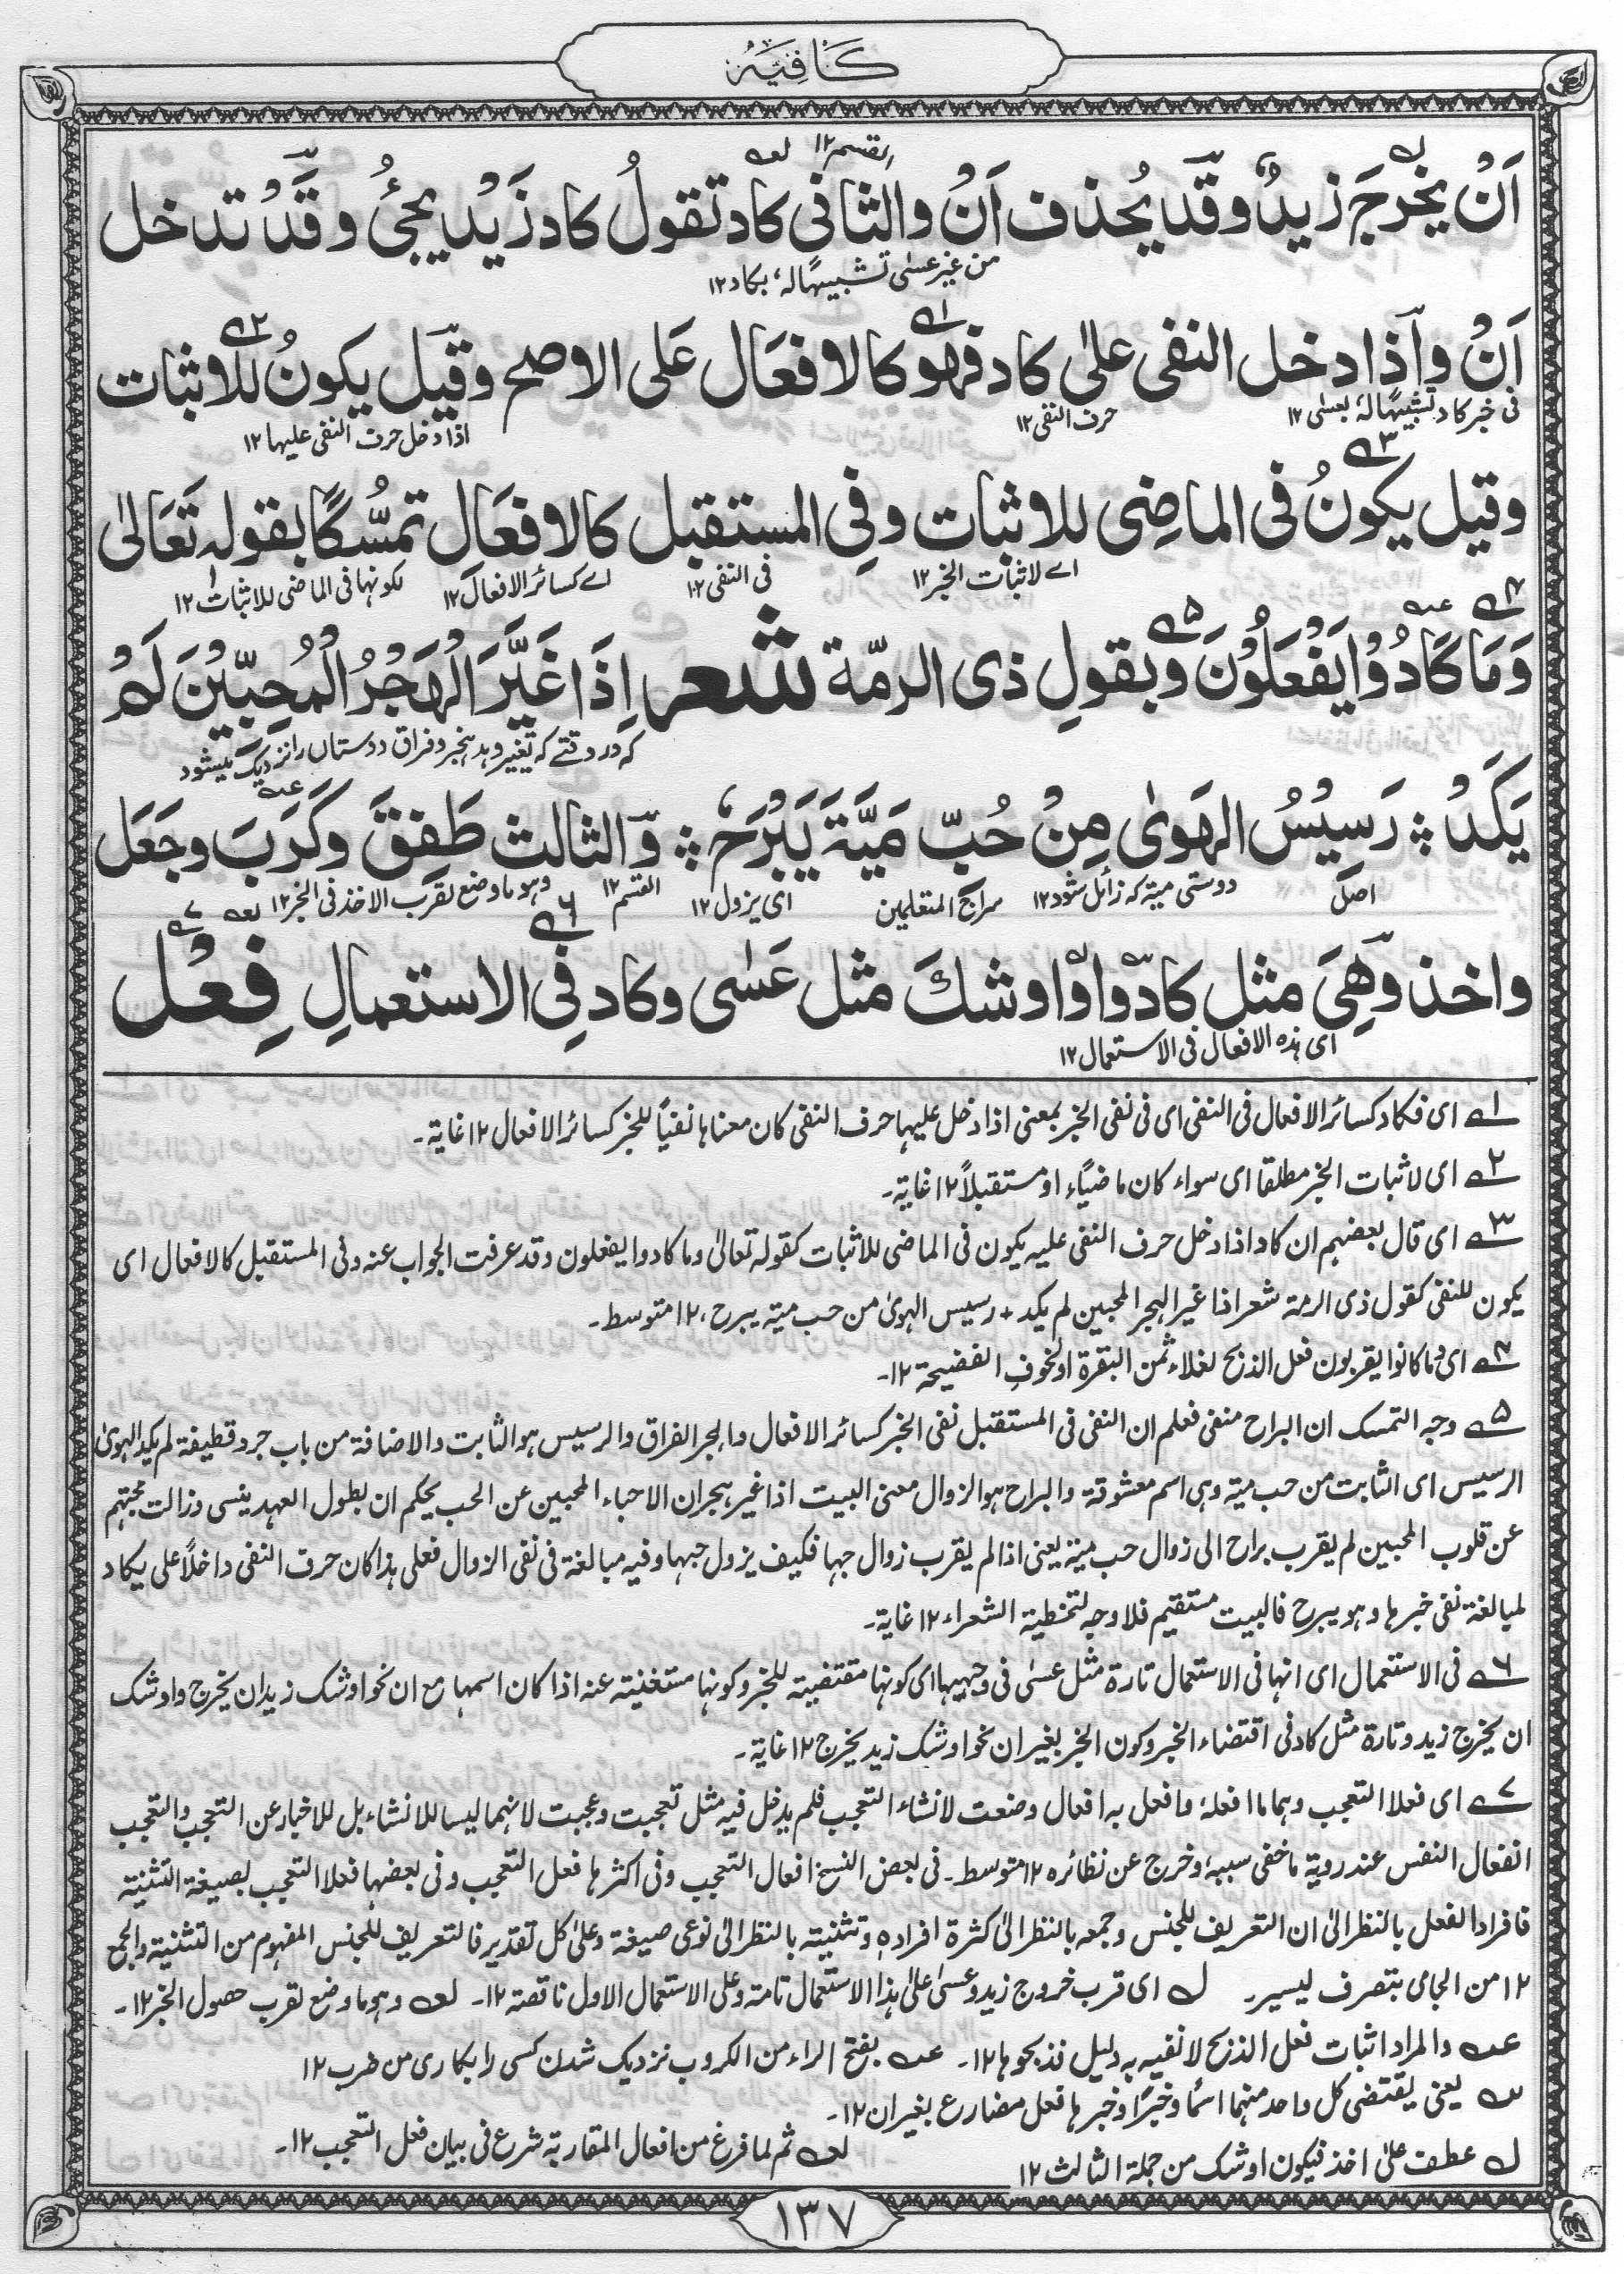 كَافِيَه
القسم ١٢
اَنْ يخرجَ زيدٌ وقد يُحذف اَنْ والثانى كاد تقولُ كاد زَيْد يجئُ وقَدْ تدخل
من غير عسٰى تشبيهًا لهٗ بكاد ١٢
اَنْ واذا دخل النفى علٰى كاد فهو كالافعَال عَلى الاصح وقيل يكونُ للاثبات
فى خبر كاد تشبيهًا لهٗ بعسٰى ١٢ حرف النفى ١٢ اذا دخل حرف النفى عليها ١٢
وقيل يكونُ فى الماضِى للاثبات وفِى المستقبل كالافعَالِ تمسُّكًا بقوله تَعَالىٰ
اے لاثبات الخبر ١٢ فى النفى ١٢ اے كسائر الافعال ١٢ لكونها فى الماضى للاثبات ١٢
وَمَا كَادُوْا يَفْعَلُوْنَ وبقولِ ذى الرمّة شعر اِذَا غَيَّرَ الْهَجْرُ الْمُحِبِّيْنَ لَمْ
كه در وقتے كه تغيير دهد هجر وفراق دوستاں را نزديك نميشود
يَكَدْ ؞ رَسِيْسُ الهَوىٰ مِنْ حُبِّ مَيَّةَ يَبْرَحُ ؞ والثالث طَفِقَ وكَرَبَ وجَعَل
اصل دوستى مية كه زائل شود ١٢ سراج المتعلمين اى يزول ١٢ القسم ١٢ وهو ما وضع لقرب الاخذ فى الخبر ١٢
واخذ وَهِىَ مثل كاد واوشكَ مثل عَسٰى وكاد فِى الاستعمالِ فِعْل
اى هذه الافعال فى الاستعمال ١٢
١ اى فكاد كسائر الافعال فى النفى اى فى نفى الخبر بمعنى اذا دخل عليها حرف النفى كان معناها نفيًا للخبر كسائر الافعال ١٢ غاية۔
٢ اى لاثبات الخبر مطلقا اى سواء كان ماضيًاء او مستقبلاً ١٢ غاية۔
٣ اى قال بعضهم ان كاد اذا دخل حرف النفى عليه يكون فى الماضى للاثبات كقوله تعالىٰ وما كادوا يفعلون وقد عرفت الجواب عنه وفى المستقبل كالافعال اى
يكون للنفى كقول ذى الرمة شعر اذا غير الهجر المحبين لم يكد + رسيس الهوىٰ من حب مية يبرح، ١٢ متوسط۔
٤ اى وما كانوا يقربون فعل الذبح لغلاء ثمن البقرة او لخوف الفضيحة ١٢۔
٥ وجه التمسك ان البراح منفى فعلم ان النفى فى المستقبل نفى الخبر كسائر الافعال والهجر الفراق والرسيس هو الثابت والاضافة من باب جرد قطيفة لم يكد الهوىٰ
الرسيس اى الثابت من حب مية وهى اسم معشوقة والبراح هو الزوال معنى البيت اذا غير هجران الاحباء المحبين عن الحب يحكم ان بطول العهد ينسى وزالت محبتهم
عن قلوب المحبين لم يقرب براح الى زوال حب مية يعنى اذا لم يقرب زوال حبها فكيف يزول حبها وفيه مبالغة فى نفى الزوال فعلى هذا كان حرف النفى داخلاً على يكاد
لمبالغة نفى خبرها وهو يبرح فالبيت مستقيم فلا وجه لتخطية الشعراء ١٢ غاية۔
٦ فى الاستعمال اى انها فى الاستعمال تارة مثل عسىٰ فى وجهيها اى كونها مقتضية للخبر وكونها مستغنية عنه اذا كان اسمها مع ان نحو اوشك زيد ان يخرج واوشك
ان يخرج زيد وتارة مثل كاد فى اقتضاء الخبر وكون الخبر بغير ان نحو اوشك زيد يخرج ١٢ غاية۔
٧ اى فعلا التعجب وهما ما افعلهٗ وافعل به افعال وضعت لانشاء التعجب فلم يدخل فيه مثل تعجبت وعجبت لانهما ليسا للانشاء بل للاخبار عن التعجب والتعجب
انفعال النفس عند روية ما خفى سببهٗ وخرج عن نظائره ١٢ متوسط۔ فى بعض النسخ افعال التعجب وفى اكثرها فعل التعجب وفى بعضها فعلا التعجب بصيغة التثنية
فافراد الفعل بالنظر الىٰ ان التعريف للجنس وجمعه بالنظر الىٰ كثرة افراده وتثنيته بالنظر الىٰ نوعى صيغة وعلىٰ كل تقدير فالتعريف للجنس المفهوم من التثنية والجمع
١٢ من الجامى بتصرف يسير۔ ل اى قرب خروج زيد وعسىٰ علىٰ هذا الاستعمال تامة وعلى الاستعمال الاول ناقصة ١٢۔ لعه وهو ما وضع لقرب حصول الخبر ١٢۔
عه والمراد اثبات فعل الذبح لا نفيه به دليل فذبحوها ١٢۔ عه بفتح الراء من الكروب نزديك شدن كسى را بكارى من ضرب ١٢
سه يعنى يقتضى كل واحد منهما اسمًا وخبرًا وخبرها فعل مضارع بغير ان ١٢۔
ل عطف علىٰ اخذ فيكون اوشك من جملة الثالث ١٢ لعه ثم لما فرغ من افعال المقاربة شرع فى بيان فعل التعجب ١٢۔
١٣٧